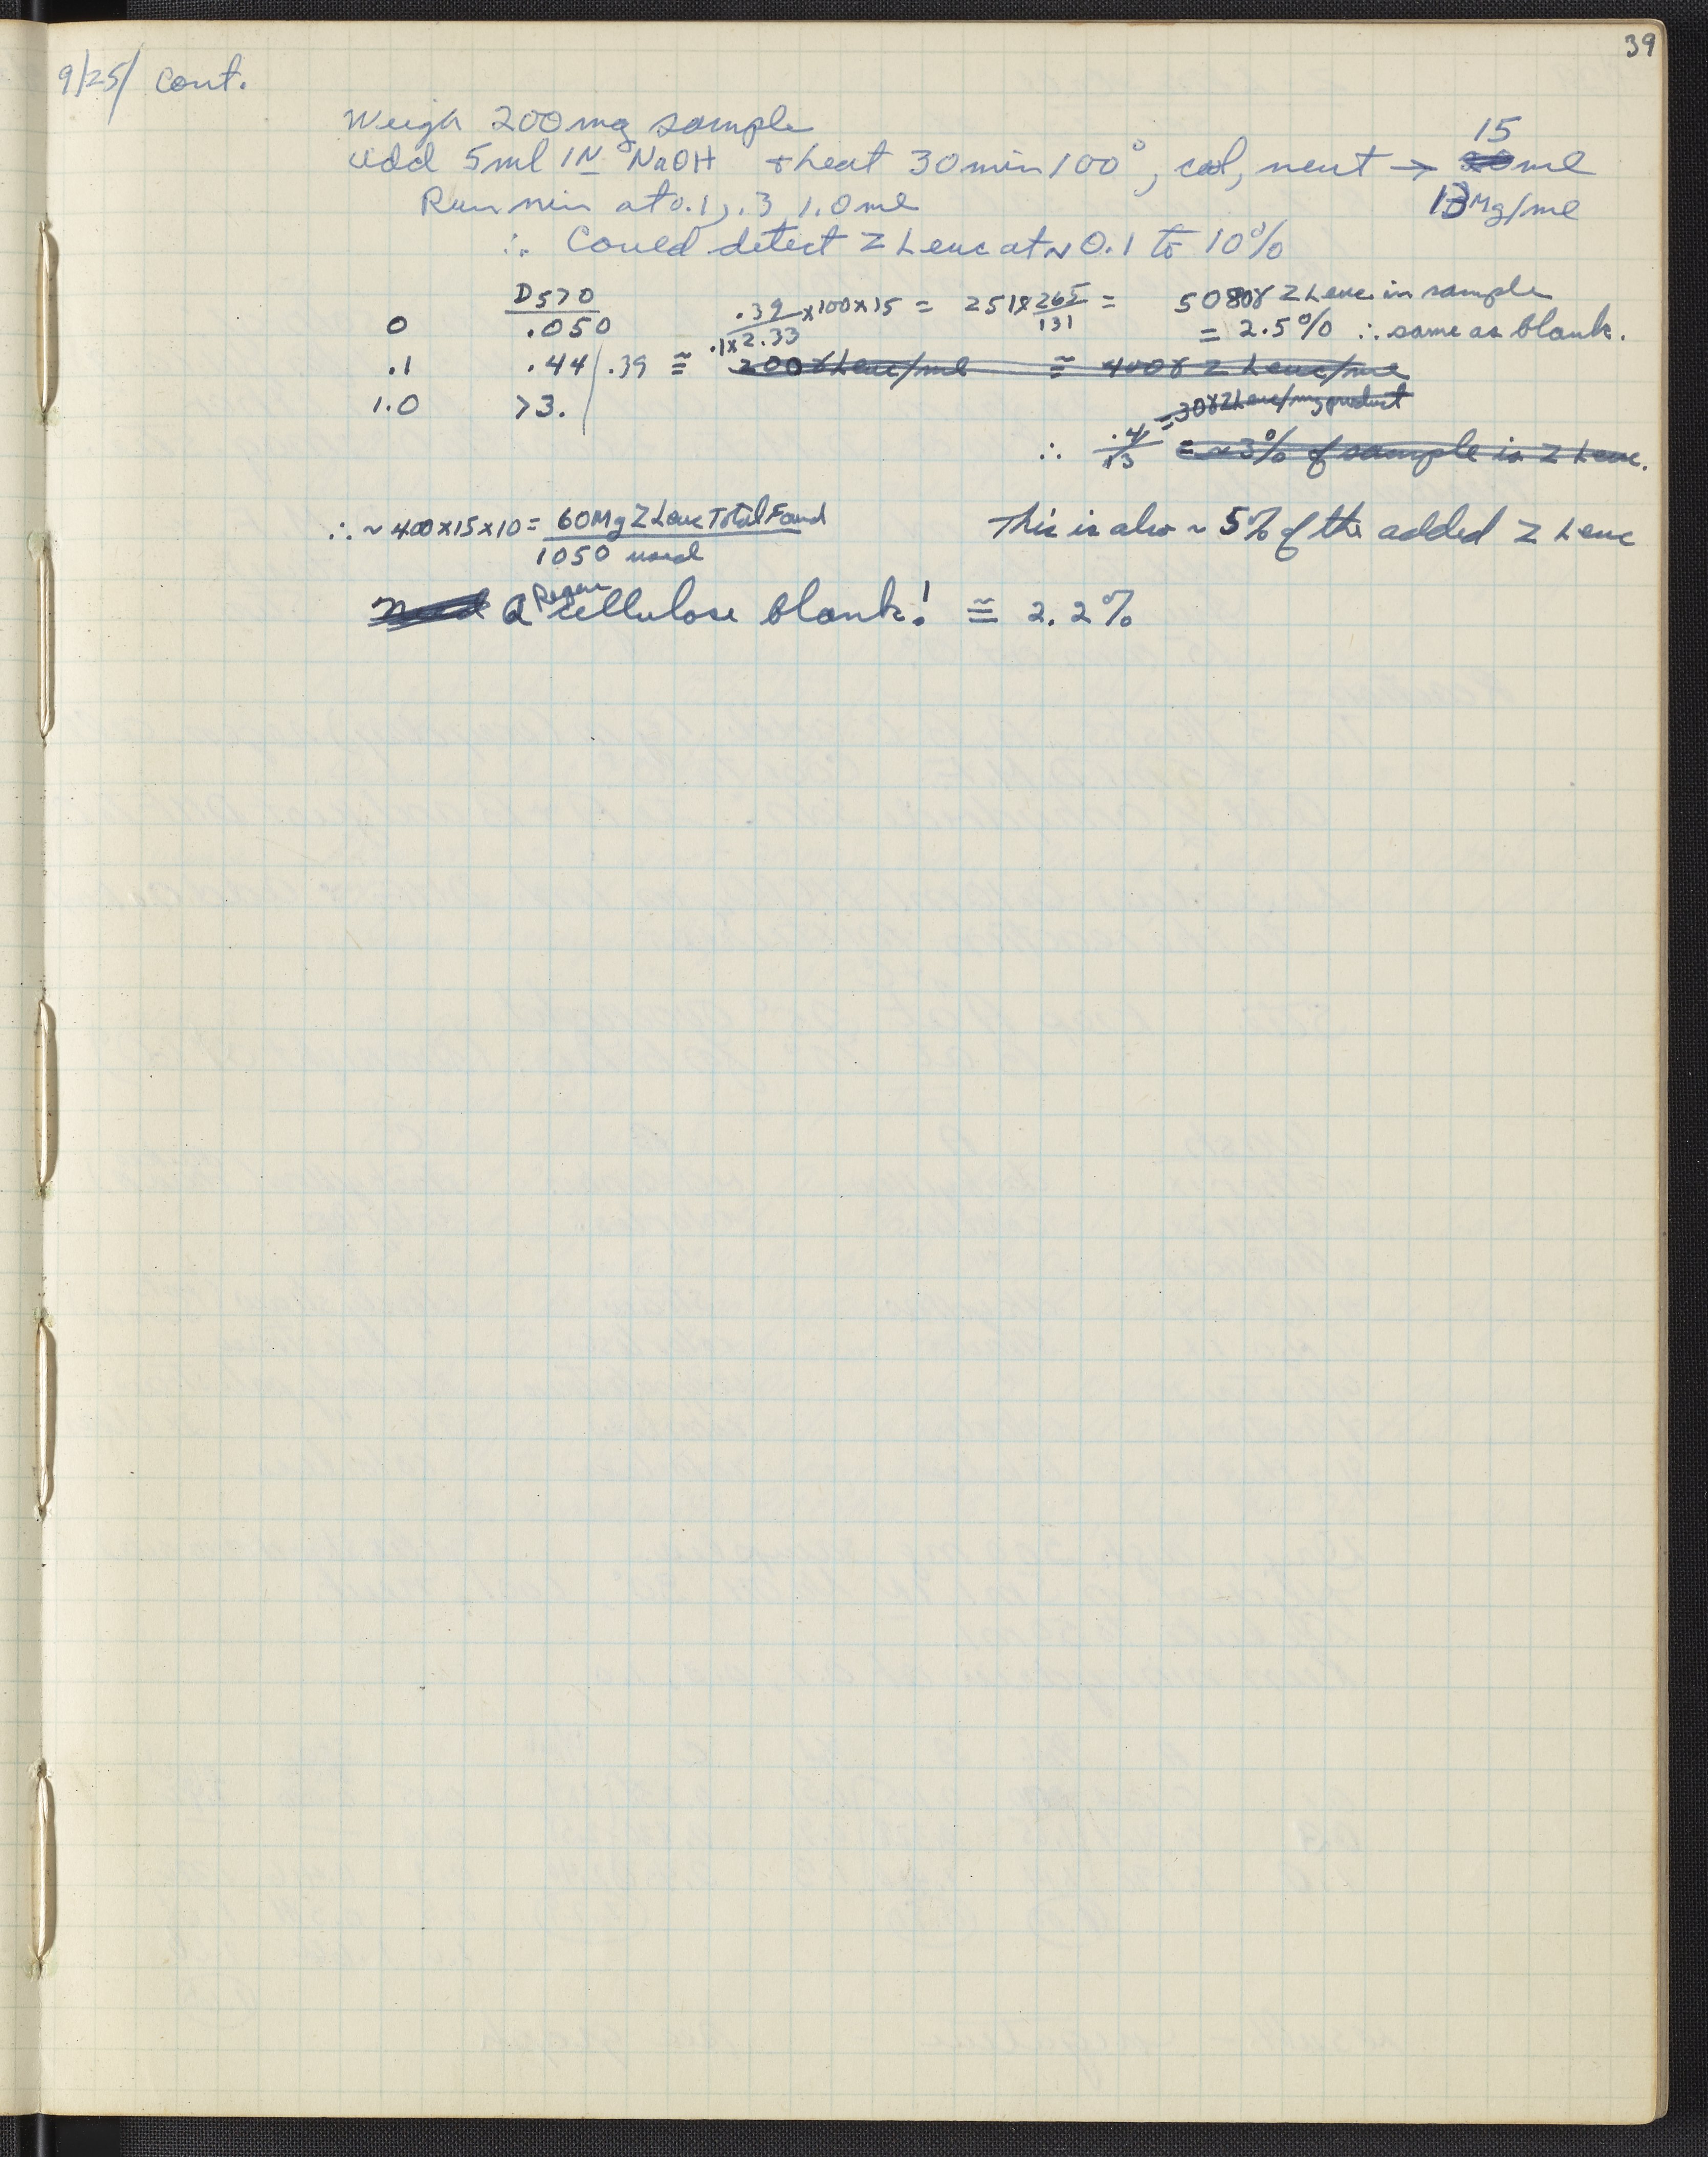 39
9/25/ Cont.
Weigh 200mg sample
Add 5ml 1N NaOH + heat 30 min 100°, cool, neut → 15 ml
Run nin at 0.1, .3, 1.0 ml 13 Mg/ml
∴ Could detect Z Leuc at ~ 0.1 to 10%
D570 .39/.1x2.33 x100x15 = 251γ 265/131 = 5080γ Z Leuc in sample
0 .050 = 2.5% ∴ same as blank.
.1 .44/.39 ≅ 200γ Leuc/ml ≅ 400γ Z Leuc/ml
1.0 >3. = 30γ Z Leuc/mg product
∴ .4/13 = ~3% of sample is Z Leuc.
∴ ~ 400x15x10 = 60Mg Z Leuc Total Found This is also ~ 5% of the added Z Leuc
1050 used
Need a Regen cellulose blank! ≅ 2.2%